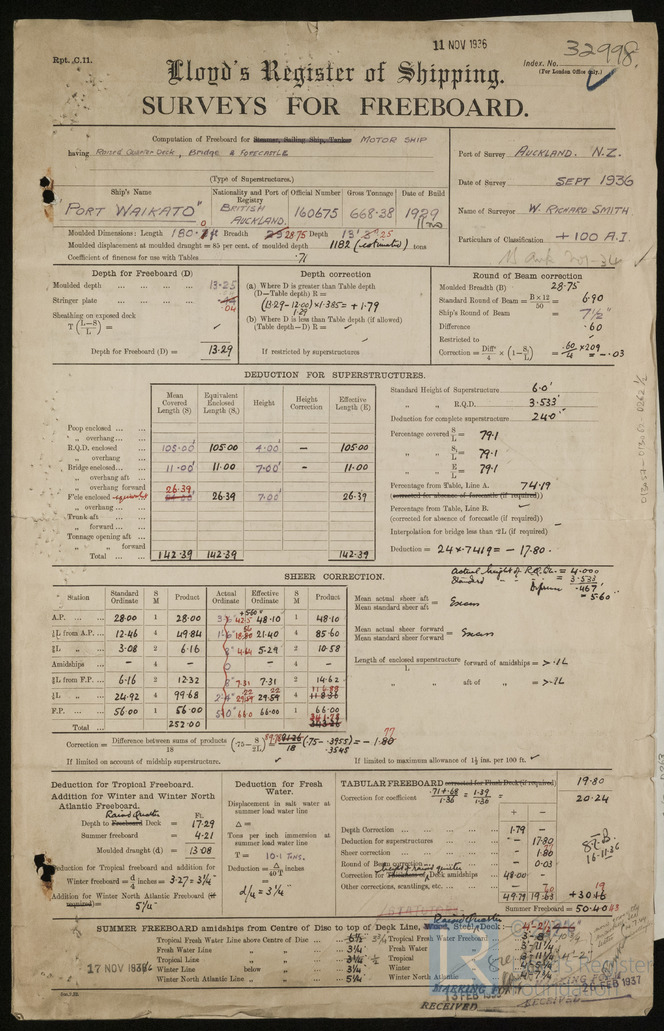 11 NOV 1936
32998.
Rpt. C.11.
Index. No.
(For London Office only.)
Lloyd's Register of Shipping.
SURVEYS FOR FREEBOARD.
Computation of Freeboard for Steamer, Sailing Ship, Tanker MOTOR SHIP
having Raised Quarter Deck, Bridge & FORECASTLE
(Type of Superstructures.)
Port of Survey AUCKLAND. N.Z.
Date of Survey SEPT 1936
Name of Surveyor W. RICHARD SMITH
Particulars of Classification +100 A.I.
Ship's Name
Nationality and Port of Registry
Official Number
Gross Tonnage
Date of Build
PORT WAIKATO"
BRITISH AUCKLAND.
160675
668.38
1929
Moulded Dimensions: Length 180. Breadth 28.75 Depth 13'
Moulded displacement at moulded draught = 85 per cent. of moulded depth 1182 (estimated) tons
Coefficient of fineness for use with Tables .71
Depth for Freeboard (D)
Moulded depth 13.25
Stringer plate .04
Sheathing on exposed deck
T (L−S/L) =
Depth for Freeboard (D) = 13.29
Depth correction
(a) Where D is greater than Table depth
(D−Table depth) R =
(13.29-12.00) x 1.385 = +1.79
1.29
(b) Where D is less than Table depth (if allowed)
(Table depth−D) R =
If restricted by superstructures
Round of Beam correction
Moulded Breadth (B) 28.75
Standard Round of Beam = B×12/50 = 6.90
Ship's Round of Beam = 7½"
Difference .60
Restricted to
Correction = Diff/4 × (1−S₁/L) = .60/4 x .209 = -.03
DEDUCTION FOR SUPERSTRUCTURES.
Mean Covered Length (S)
Equivalent Enclosed Length (S₁)
Height
Height Correction
Effective Length (E)
Poop enclosed
„ overhang
R.Q.D. enclosed 105.00' 105.00 4.00' — 105.00
„ overhang
Bridge enclosed 11.00' 11.00 7.00' — 11.00
„ overhang aft
„ overhang forward
F'cle enclosed equivalent 26.39 26.39 7.00' 26.39
„ overhang
Trunk aft
„ forward
Tonnage opening aft
„ „ forward
Total 142.39 142.39 142.39
Standard Height of Superstructure 6.0'
„ „ R.Q.D. 3.533'
Deduction for complete superstructure 24.0"
Percentage covered S/L = 79.1
„ S₁/L = 79.1
„ E/L = 79.1
Percentage from Table, Line A. 74.19
(corrected for absence of forecastle (if required))
Percentage from Table, Line B.
(corrected for absence of forecastle (if required))
Interpolation for bridge less than ·2L (if required)
Deduction = 24 x .7419 = - 17.80.
Actual height of R.Q.Dk. = 4.000
Standard = 3.533
Difference .467
= 5.60"
SHEER CORRECTION.
Station
Standard Ordinate
S M
Product
Actual Ordinate
Effective Ordinate
S M
Product
A.P. 28.00 1 28.00 48.10 1 48.10
⅙L from A.P. 12.46 4 49.84 21.40 4 85.60
⅓L „ 3.08 2 6.16 5.29 2 10.58
Amidships — 4 — 4 —
⅓L from F.P. 6.16 2 12.32 7.31 7.31 2 14.62
⅙L „ 24.92 4 99.68 29.59 4
F.P. 56.00 1 56.00 66.0 66.00 1 66.00
Total 252.00
Mean actual sheer aft
Mean standard sheer aft = Excess
Mean actual sheer forward
Mean standard sheer forward = Excess
Length of enclosed superstructure/L forward of amidships = >.1L
„ „ aft of „ = >.1L
Correction = Difference between sums of products/18 (·75−S/2L) = (.75-.3955) = - 1.80
.3545
If limited on account of midship superstructure.
If limited to maximum allowance of 1½ ins. per 100 ft.
Deduction for Tropical Freeboard.
Addition for Winter and Winter North Atlantic Freeboard.
Ft.
Raised Quarter
Depth to Freeboard Deck = 17.29
Summer freeboard = 4.21
Moulded draught (d) = 13.08
Deduction for Tropical freeboard and addition for
Winter freeboard = d/4 inches = 3.27 = 3¼"
Addition for Winter North Atlantic Freeboard (if required) =
5¼"
Deduction for Fresh Water.
Displacement in salt water at summer load water line
Δ =
Tons per inch immersion at summer load water line
T = 10.1 TONS.
Deduction = Δ/40T inches
d/4 = 3¼"
TABULAR FREEBOARD corrected for Flush Deck (if required) 19.80
Correction for coefficient .71+.68/1.36 = 1.39/1.36 = 20.24
+ −
Depth Correction 1.79 —
Deduction for superstructures — 17.80
Sheer correction — 1.80
Round of Beam correction — 0.03
Correction for height of raised quarter Deck amidships 48.00 —
Other corrections, scantlings, etc.
49.79 19.63
+30.16
Summer Freeboard = 50.40
16-11-36
SUMMER FREEBOARD amidships from Centre of Disc to top of Deck Line, Wood, Steel, Deck:
Raised Quarter
Tropical Fresh Water Line above Centre of Disc 6½
Fresh Water Line „ „ 3¼"
Tropical Line „ „ 3¼"
Winter Line below „ 3¼
Winter North Atlantic Line „ „ 5¼
Tropical Fresh Water Freeboard
Fresh Water „
Tropical „
Winter „
Winter North Atlantic „
17 NOV 1936
MARKING FORM
RECEIVED
RECEIVED
26 FEB 1937
Lloyd's Register
Foundation